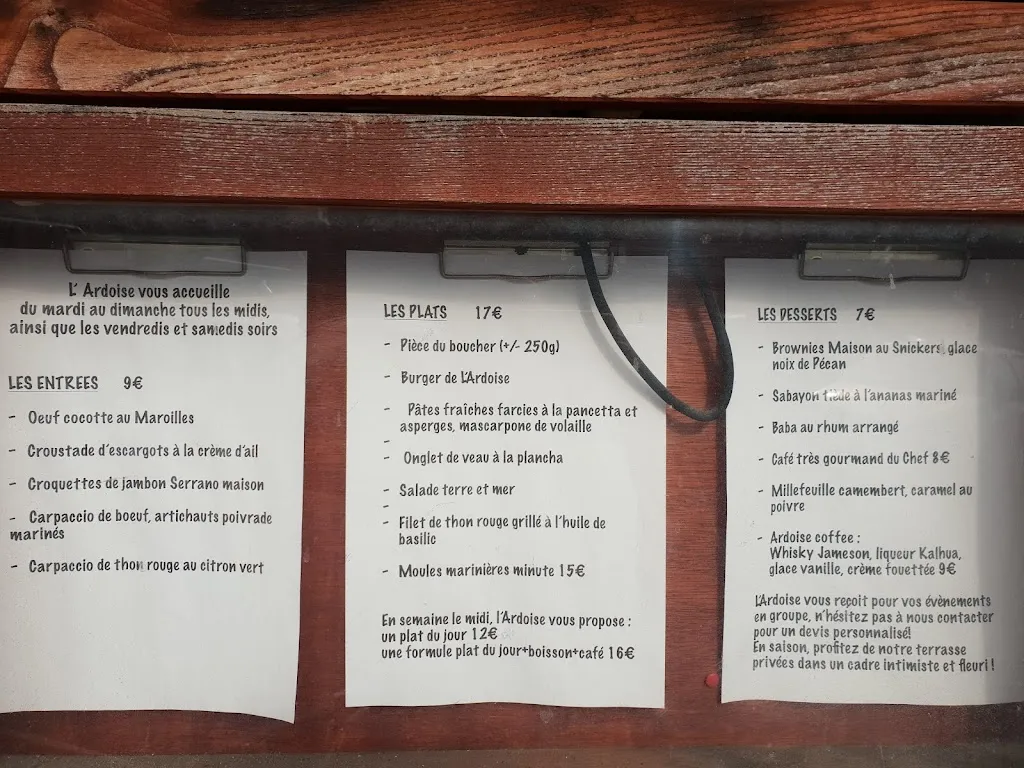 L' Ardoise vous accueille
du mardi au dimanche tous les midis,
ainsi que les vendredis et samedis soirs
LES ENTREES 9€
- Oeuf cocotte au Maroilles
- Croustade d'escargots à la crème d'ail
- Croquettes de jambon Serrano maison
- Carpaccio de boeuf, artichauts poivrade
marinés
- Carpaccio de thon rouge au citron vert
LES PLATS 17€
- Pièce du boucher (+/- 250g)
- Burger de L'Ardoise
- Pâtes fraîches farcies à la pancetta et
asperges, mascarpone de volaille
-
- Onglet de veau à la plancha
- Salade terre et mer
-
- Filet de thon rouge grillé à l'huile de
basilic
- Moules marinières minute 15€
En semaine le midi, l'Ardoise vous propose :
un plat du jour 12€
une formule plat du jour+boisson+café 16€
LES DESSERTS 7€
- Brownies Maison au Snickers, glace
noix de Pécan
- Sabayon tiède à l'ananas mariné
- Baba au rhum arrangé
- Café très gourmand du Chef 8€
- Millefeuille camembert, caramel au
poivre
- Ardoise coffee :
Whisky Jameson, liqueur Kalhua,
glace vanille, crème fouettée 9€
L'Ardoise vous reçoit pour vos évènements
en groupe, n'hésitez pas à nous contacter
pour un devis personnalisé!
En saison, profitez de notre terrasse
privées dans un cadre intimiste et fleuri !